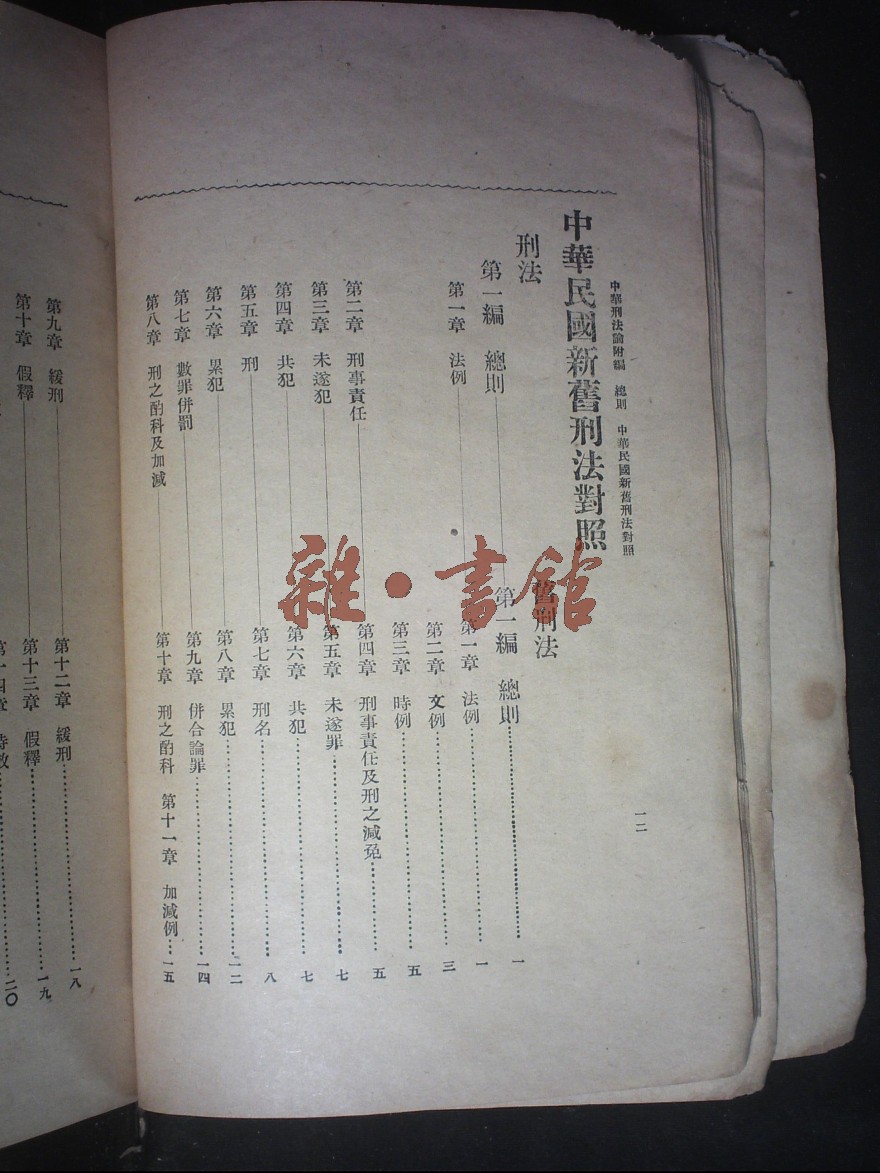 中華刑法論附編 總則 中華民國新舊刑法對照
一二
中華民國新舊刑法對照
刑法 舊刑法
第一編 總則 第一編 總則 一
第一章 法例 第一章 法例 一
第二章 文例 三
第三章 時例 五
第二章 刑事責任 第四章 刑事責任及刑之減免 五
第三章 未遂犯 第五章 未遂罪 七
第四章 共犯 第六章 共犯 七
第五章 刑 第七章 刑名 八
第六章 累犯 第八章 累犯 一二
第七章 數罪併罰 第九章 併合論罪 一四
第八章 刑之酌科及加減 第十章 刑之酌科 第十一章 加減例 一五
第九章 緩刑 第十二章 緩刑 一八
第十章 假釋 第十三章 假釋 一九
第十四章 時效 二〇
雜·書館